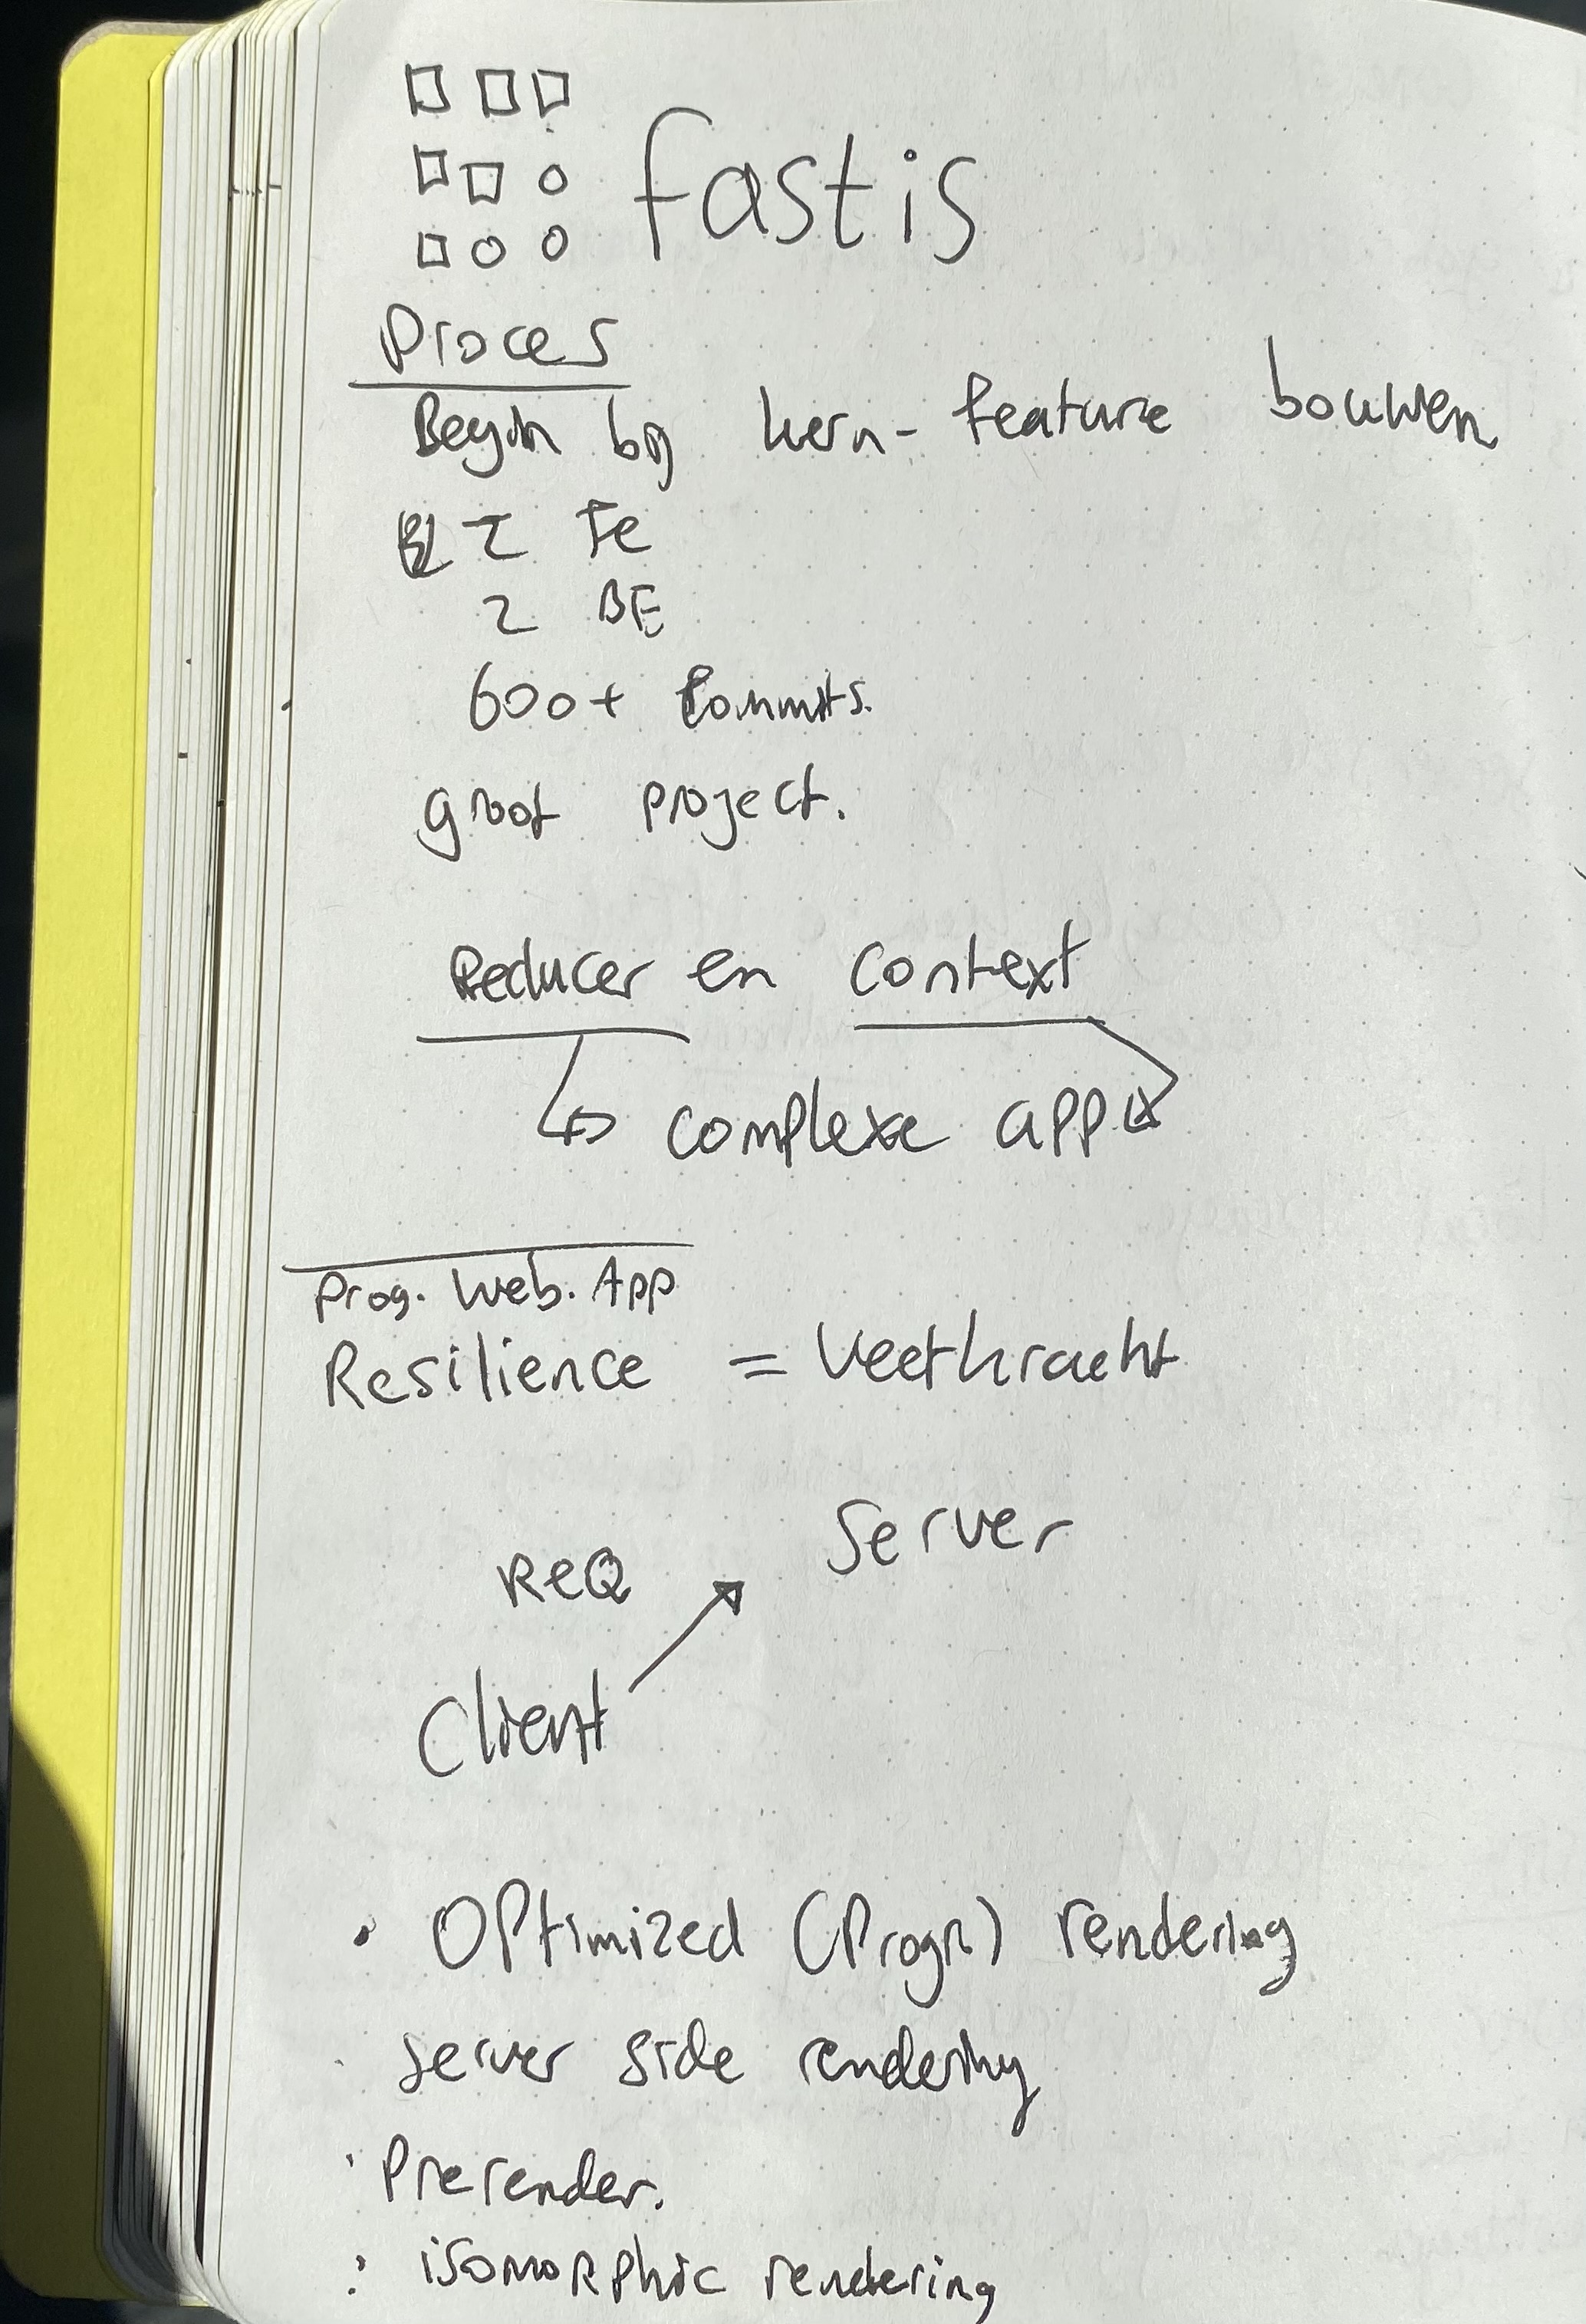 fastis
Proces
Begin bij kern-feature bouwen
2 Fe
2 BE
600+ Commits.
groot project.
Reducer en context
complexe app
Prog. Web. App
Resilience = Veerkracht
Server
ReQ
Client
• Optimized (Progr) rendering
· server side rendering
· Prerender.
: isomorphic rendering